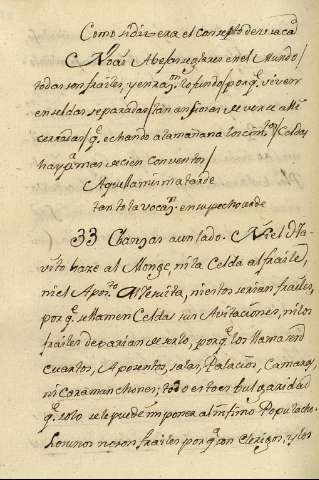 Como si dix era el consepto de
No ai Abejas seglares en el Mundo/
todas son frailes, y en raçon lo fundo/ porq.e viven
en seldas separadas/ tan ansiosas de verse alli
serradas/ q.e echando a la mañana los cimtos/ Celdas
hay p.a mas de cien conventos/
Aquella misma tarde
tanto la vocan. en su pecho arde
33 Chanzas a un lado. Ni el Ha-
vito haze al Monge, ni la Celda al fraile,
ni el Apos.to Al Jesuita, ni estos serian frailes,
porq.e se llamen Celdas sus Avitaciones, ni los
frailes dexarian de serlo, porq.e los llamasen
Cuartos, Aposentos, salas, Palacios, Camaras,
ni Caramanchones; todo esto es bulgaridad
q.e solo se le puede imponer al infimo Populacho.
no son frailes porq.e son Clerigos, y los